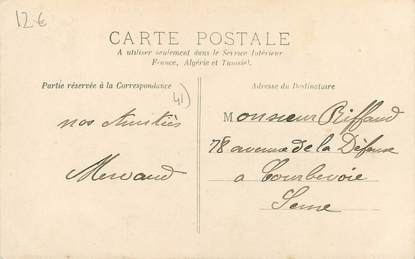 12€
CARTE POSTALE
A utiliser seulement dans le Service Intérieur
France, Algérie et Tunisie).
Partie réservée à la Correspondance
Adresse du Destinataire
41)
nos Amitiés
Mervaud
Monsieur Riffaud
78 avenue de la Défense
a Courbevoie
Seine